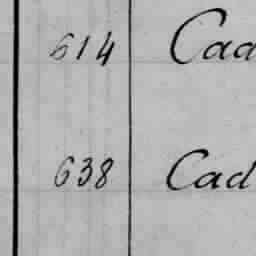 614 Cad
638 Cad